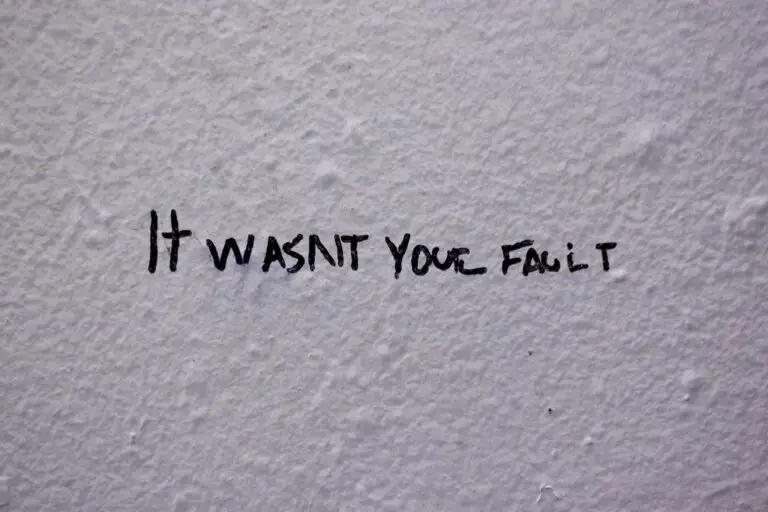 It WASNT YOUR FAULT